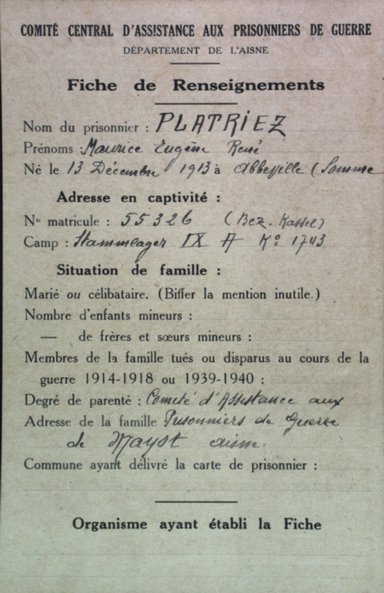 COMITÉ CENTRAL D'ASSISTANCE AUX PRISONNIERS DE GUERRE
DÉPARTEMENT DE L'AISNE
Fiche de Renseignements
Nom du prisonnier : PLATRIEZ
Prénoms : Maurice Eugène René
Né le 13 Décembre 1913 à Abbeville (Somme
Adresse en captivité :
No matricule : 55326 (Bez. Kassel)
Camp : Stammlager IX A Ko 1743
Situation de famille :
Marié ou célibataire. (Biffer la mention inutile.)
Nombre d'enfants mineurs :
— de frères et sœurs mineurs :
Membres de la famille tués ou disparus au cours de la
guerre 1914-1918 ou 1939-1940 :
Degré de parenté : Comité d'Assistance aux
Adresse de la famille Prisonniers de Guerre
de Mayot aisne.
Commune ayant délivré la carte de prisonnier :
Organisme ayant établi la Fiche